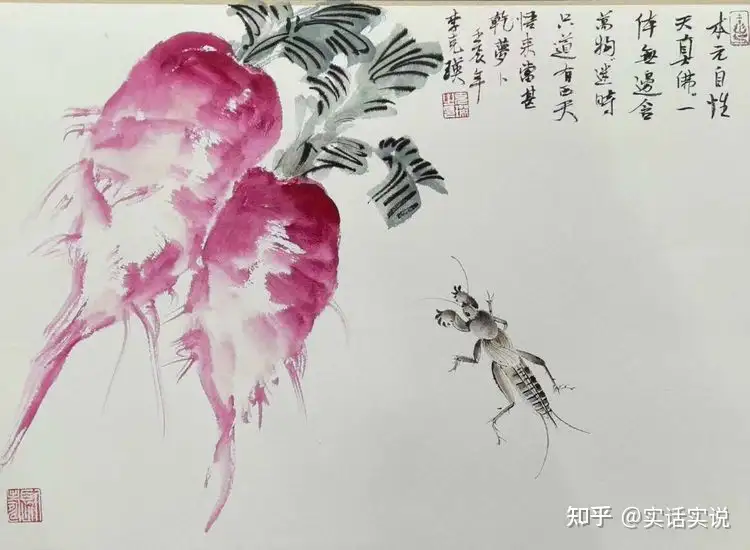 本元自性
天真佛一
体無邊含
萬物迷時
只道有西天
悟来當甚
乾蘿卜
壬辰年
李克瑛
知乎 @实话实说